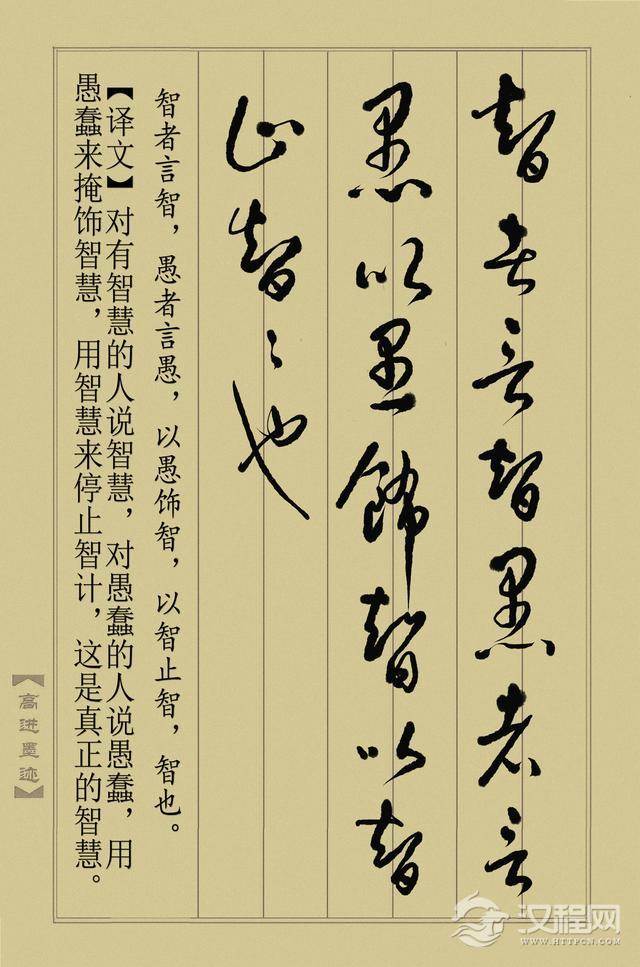 智者言智愚者言
愚以愚飾智以智
止智智也
智者言智，愚者言愚，以愚饰智，以智止智，智也。
【译文】对有智慧的人说智慧，对愚蠢的人说愚蠢，用
愚蠢来掩饰智慧，用智慧来停止智计，这是真正的智慧。
【高进墨迹】
汉程网
WWW.HTTPCN.COM